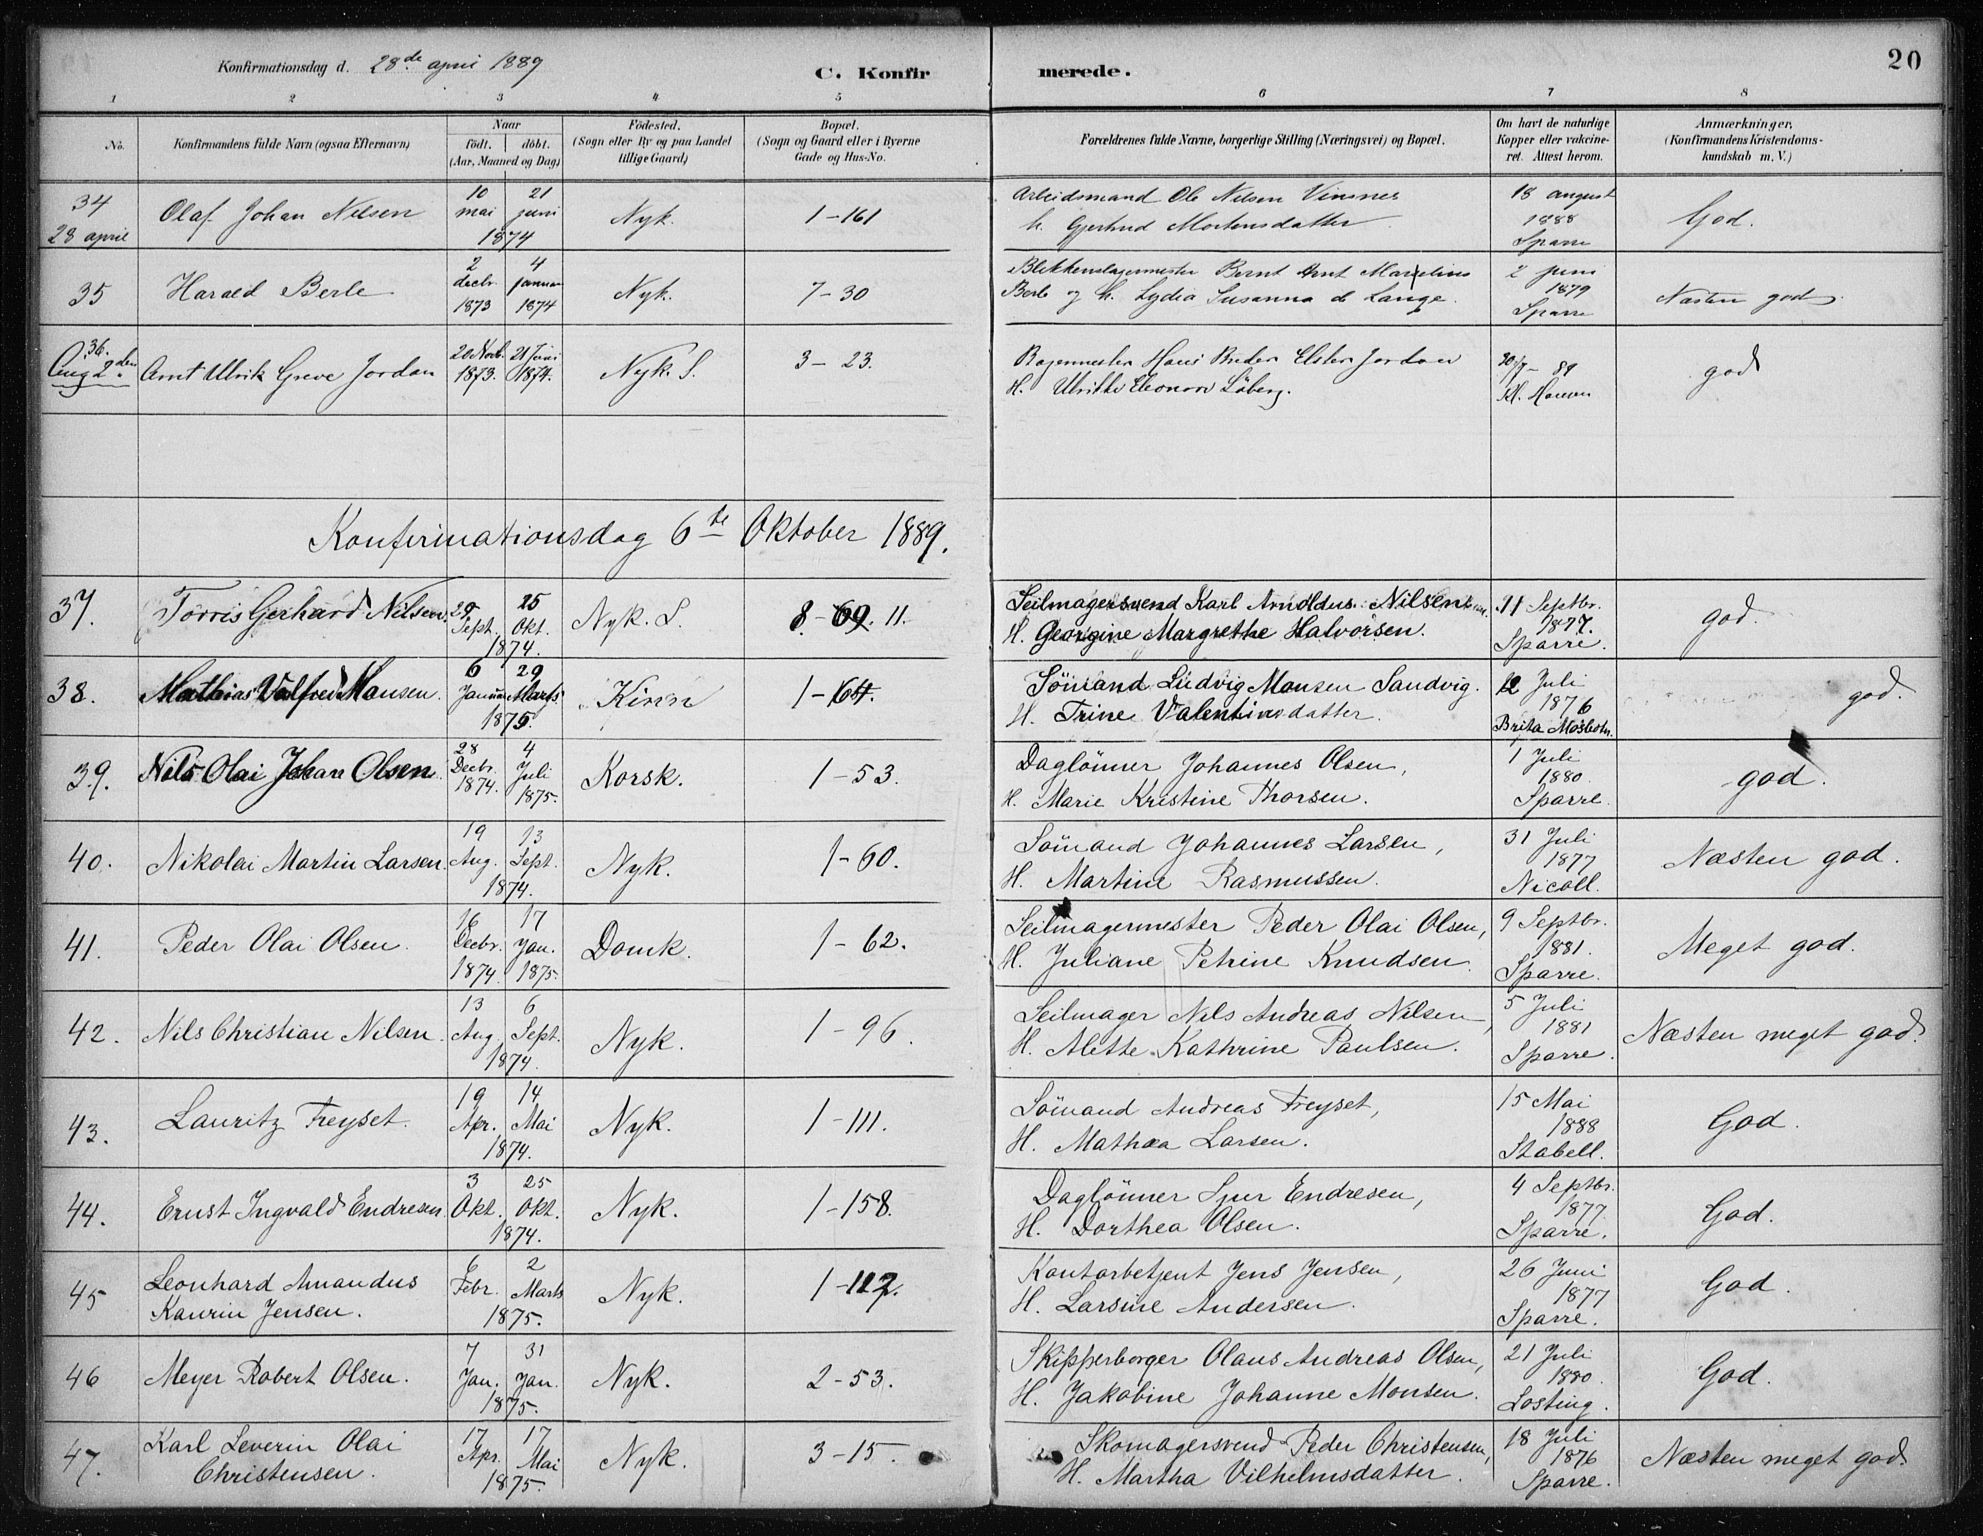 Konfirmationsdag d. 28de april 1889
C. Konfirmerede.
20
1 2 3 4 5 6 7 8
No.
Konfirmandens fulde Navn (ogsaa Efternavn)
Naar
födt. döbt.
(Aar, Maaned og Dag)
Födested.
(Sogn eller By og paa Landet
tillige Gaard)
Bopæl.
(Sogn og Gaard eller i Byerne
Gade og Hus-No.
Forældrenes fulde Navne, borgerlige Stilling (Næringsvei) og Bopæl.
Om havt de naturlige
Kopper eller vakcine-
ret. Attest herom.
Anmærkninger.
(Konfirmandens Kristendoms-
kundskab m. V.)
34
28 april
Olaf Johan Nilsen
10 mai 21 juni
1874
Nyk.
1-161
Arbeidsmand Ole Nilsen Vinsnes
h. Gjertrud Mortensdatter
18 august
1888
Sparre
God.
35
Harald Berle
2 decbr 1873
4 januar 1874
Nyk.
7-30
Blikkenslagermester Bernt Arnt Marselius
Berle og h. Lydia Susanna de Lange.
2 juni
1879
Sparre
Næsten god
36.
Aug 2den
Arnt Ulrik Greve Jordan
20 Novb. 1873.
21 Juni 1874.
Nyk. S.
3-23.
Bagermester Hans Breder Elster Jordan
H. Ulrikke Eleonore Löberg.
30/7-89
Kl. Hansen
god
Konfirmationsdag 6te Oktober 1889.
37.
Torris Gerhard Nilsen.
29 Sept. 25 Okt.
1874.
Nyk. S.
8-69. 11.
Seilmagersvend Karl Arnoldus Nilsen
H. Georgine Margrethe Halvorsen.
11 Septbr.
1877.
Sparre.
god.
38.
Mathias Valfred Monsen.
6 Januar 29 Marts
1875.
Kinn
1-64.
Sömand Ludvig Monsen Sandvig.
H. Trine Valentinsdatter.
12 Juli
1876
Brita Mosbotn.
god.
39.
Nils Olai Johan Olsen
28 Decbr. 1874.
4 Juli 1875.
Korsk.
1-53.
Daglönner Johannes Olsen,
H. Marie Kristine Thorsen.
1 Juli
1880.
Sparre.
god.
40.
Nikolai Martin Larsen.
19 Aug. 13 Sept.
1874.
Nyk.
1-60.
Sömand Johannes Larsen,
H. Martine Rasmussen.
31 Juli
1877
Nicoll.
Næsten god.
41.
Peder Olai Olsen.
16 Decbr. 1874
17 Jan. 1875.
Domk.
1-62.
Seilmagermester Peder Olai Olsen,
H. Juliane Petrine Knudsen.
9 Septbr.
1881.
Sparre.
Meget god.
42.
Nils Christian Nilsen.
13 Aug. 6 Sept.
1874.
Nyk.
1-96.
Seilmager Nils Andreas Nilsen,
H. Alette Kathrine Paulsen.
5 Juli
1881
Sparre.
Næsten meget god.
43.
Lauritz Freyset.
19 Apr. 14 Mai
1874.
Nyk.
1-111.
Sömand Andreas Freyset,
H. Mathea Larsen.
15 Mai
1888
Stabell.
God.
44.
Ernst Ingvald Endresen.
3 Okt. 25 Okt.
1874.
Nyk.
1-158.
Daglönner Sjur Endresen,
H. Dorthea Olsen.
4 Septbr.
1877
Sparre.
God.
45
Leonhard Amandus
Kaurin Jensen.
6 Febr. 2 Marts
1875.
Nyk.
1-112.
Kontorbetjent Jens Jensen,
H. Larsine Andersen.
26 Juni
1877
Sparre.
God.
46
Meyer Robert Olsen.
7 Jan. 31 Jan.
1875.
Nyk.
2-53.
Skipperborger Olaus Andreas Olsen,
H. Jakobine Johanne Monsen.
21 Juli
1880.
Losting.
God.
47.
Karl Severin Olai
Christensen.
17 Apr. 17 Mai
1875.
Nyk.
3-15.
Skomagersvend Peder Christensen,
H. Martha Vilhelmsdatter.
18 Juli
1876
Sparre.
Næsten meget god.